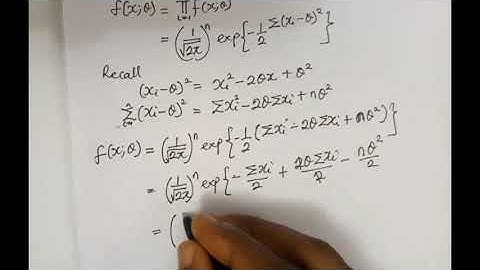 f(x;θ) = ∏_{i=1}^{n} f(x;θ)
= (1/√2x)^n exp{-1/2 Σ(xi-θ)^2}
Recall
(xi-θ)^2 = xi^2 - 2θx + θ^2
Σ_{i=1}^{n} (xi-θ)^2 = Σxi^2 - 2θΣxi + nθ^2
f(x;θ) = (1/√2x)^n exp{-1/2 (Σxi - 2θΣxi + nθ^2)}
= (1/√2x)^n exp{- Σxi/2 + 2θΣxi/2 - nθ^2/2
= (